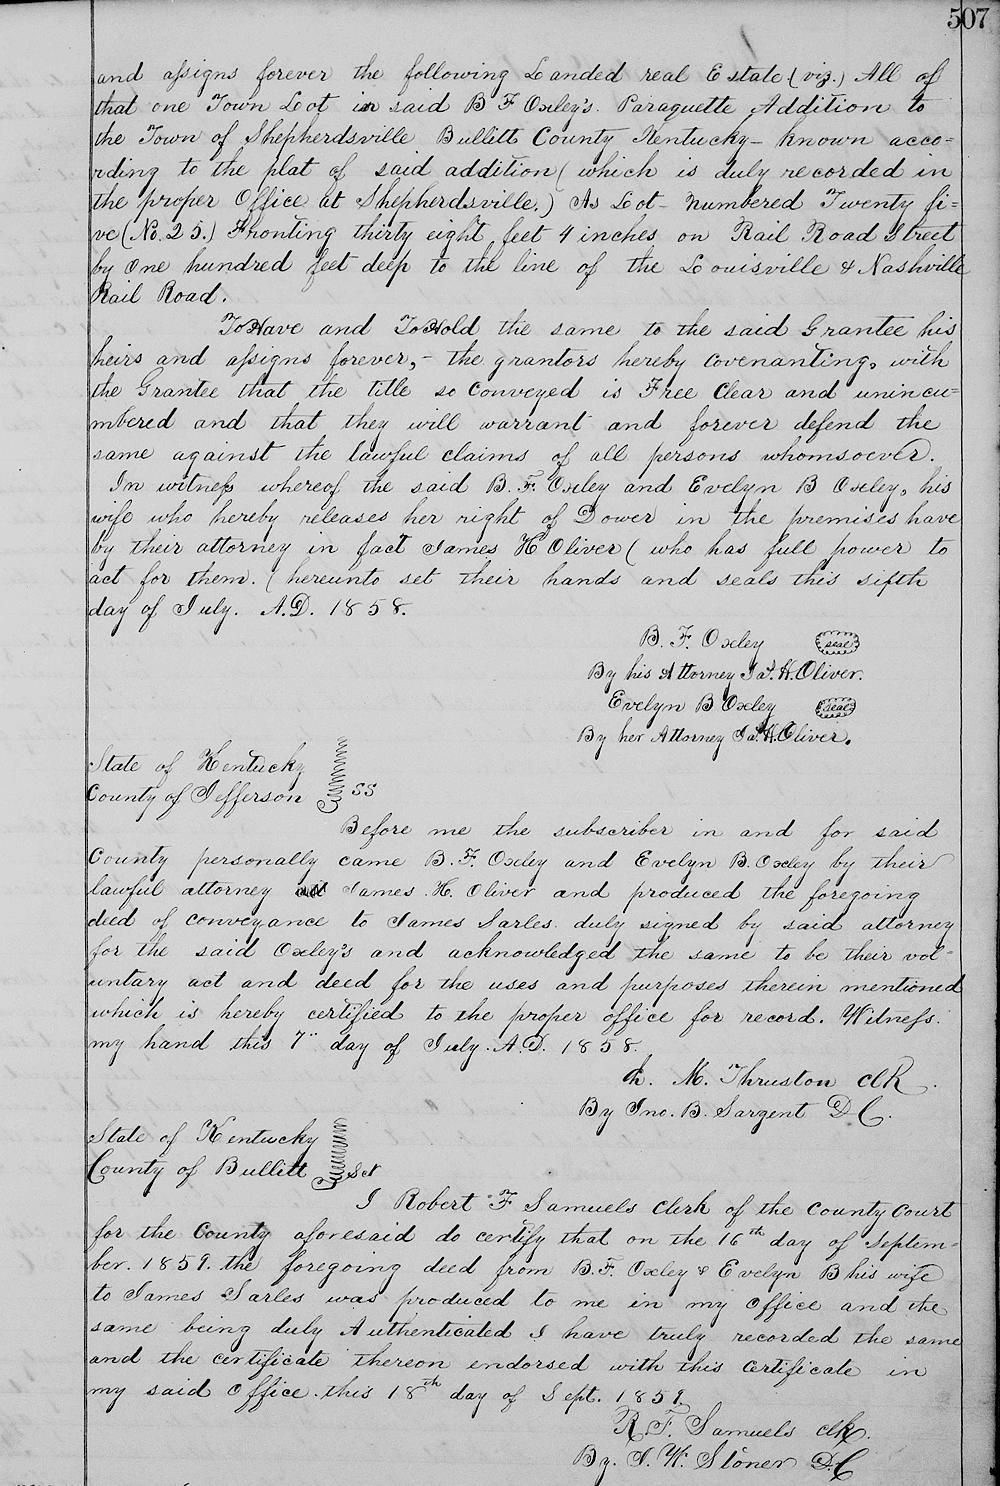 507
and assigns forever the following Landed real Estate (viz.) All of
that one Town Lot in said B F Oxley's Paraquette Addition to
the Town of Shepherdsville Bullitt County Kentucky – known acco=
rding to the plat of said addition (which is duly recorded in
the proper Office at Shepherdsville.) As Lot – numbered Twenty fi=
ve (No. 25.) Fronting thirty eight feet 4 inches on Rail Road Street
by One hundred feet deep to the line of the Louisville & Nashville
Rail Road.
To Have and To Hold the same to the said Grantee his
heirs and assigns forever, – the grantors hereby covenanting, with
the Grantee that the title so conveyed is Free Clear and unincu=
mbered and that they will warrant and forever defend the
same against the lawful claims of all persons whomsoever.
In witness whereof the said B. F. Oxley and Evelyn B Oxley, his
wife who hereby releases her right of Dower in the premises have
by their attorney in fact James H Oliver (who has full power to
act for them. (hereunto set their hands and seals this sifth
day of July. A.D. 1858.
B. F. Oxley seal
By his Attorney Jas. H. Oliver.
Evelyn B Oxley seal
By her Attorney Jas. H. Oliver.
State of Kentucky
County of Jefferson SS
Before me the subscriber in and for said
County personally came B. F. Oxley and Evelyn B. Oxley by their
lawful attorney James H. Oliver and produced the foregoing
deed of conveyance to James Sarles duly signed by said attorney
for the said Oxley's and acknowledged the same to be their vol-
untary act and deed for the uses and purposes therein mentioned
which is hereby certified to the proper office for record. Witness.
my hand this 7" day of July. A.D. 1858.
Ch. M. Thruston Clk.
By Jno. B. Sargent D C.
State of Kentucky
County of Bullitt Sct
I Robert F Samuels Clerk of the County Court
for the County aforesaid do certify that on the 16th day of Septem-
ber. 1859. the foregoing deed from B. F. Oxley & Evelyn B his wife
to James Sarles was produced to me in my office and the
same being duly Authenticated I have truly recorded the same
and the certificate thereon endorsed with this Certificate in
my said office this 18th day of Sept. 1859.
R. F. Samuels clk.
By. J. W. Stoner D. C